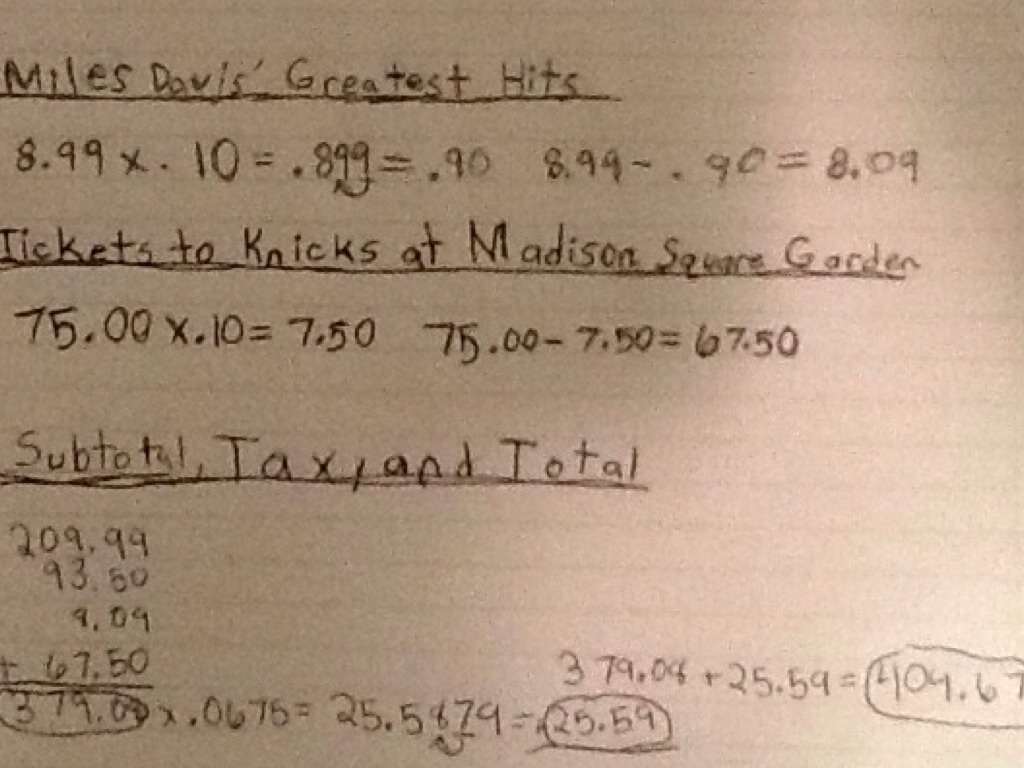 Miles Davis' Greatest Hits
8.99 x .10 = .899 = .90 8.99 - .90 = 8.09
Tickets to Knicks at Madison Square Garden
75.00 x .10 = 7.50 75.00 - 7.50 = 67.50
Subtotal, Tax, and Total
209.99
93.50
8.09
+ 67.50
379.08 + 25.59 = 404.67
379.08 x .0675 = 25.5879 = 25.59